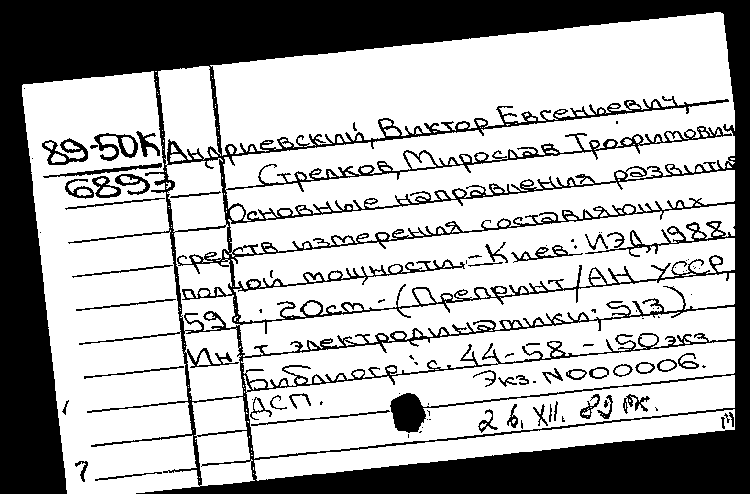 89-50К Андриевский, Виктор Евгеньевич,
6893 Стрелков, Мирослав Трофимович
Основные направления развития
средств измерения составляющих
полной мощности. - Киев: ИЭД, 1988. -
59 с.; 20 см. - (Препринт / АН УССР,
Ин-т электродинамики; 513).
Библиогр.: с. 44-58. - 150 экз.
ДСП. Экз. N000006.
26. XII. 89
7